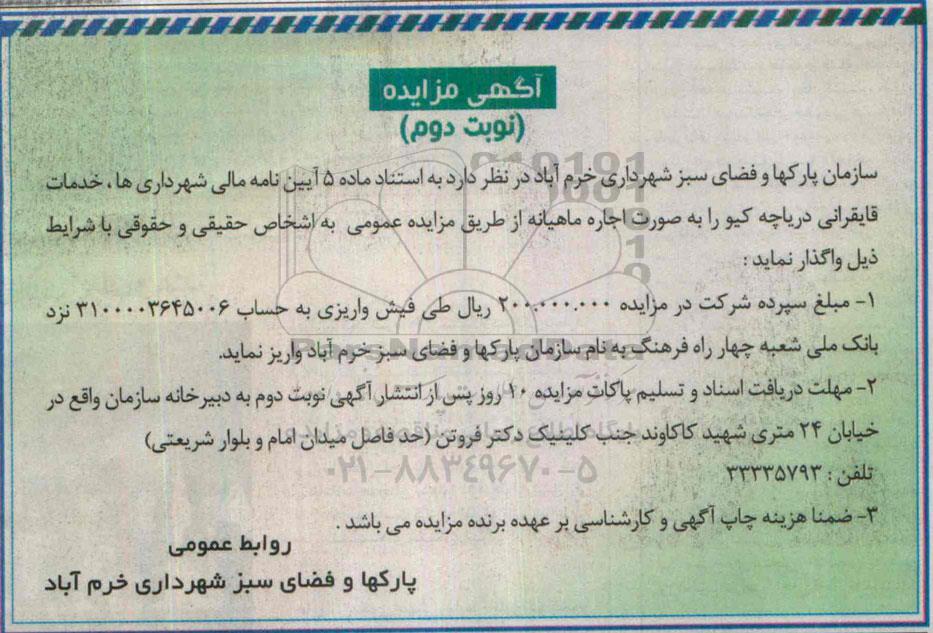 آگهی مزایده
(نوبت دوم)
سازمان پارکها و فضای سبز شهرداری خرم آباد در نظر دارد به استناد ماده ۵ آیین نامه مالی شهرداری ها ، خدمات
قایقرانی دریاچه کیو را به صورت اجاره ماهیانه از طریق مزایده عمومی به اشخاص حقیقی و حقوقی با شرایط
ذیل واگذار نماید :
۱- مبلغ سپرده شرکت در مزایده ۲۰۰.۰۰۰.۰۰۰ ریال طی فیش واریزی به حساب ۳۱۰۰۰۰۳۶۴۵۰۰۶ نزد
بانک ملی شعبه چهار راه فرهنگ به نام سازمان پارکها و فضای سبز خرم آباد واریز نماید.
۲- مهلت دریافت اسناد و تسلیم پاکات مزایده ۱۰ روز پس از انتشار آگهی نوبت دوم به دبیرخانه سازمان واقع در
خیابان ۲۴ متری شهید کاکاوند جنب کلینیک دکتر فروتن (حد فاصل میدان امام و بلوار شریعتی)
۰۲۱-۸۸۳۴۹۶۷۰-۵
تلفن : ۳۳۳۳۵۷۹۳
۳- ضمنا هزینه چاپ آگهی و کارشناسی بر عهده برنده مزایده می باشد .
روابط عمومی
پارکها و فضای سبز شهرداری خرم آباد